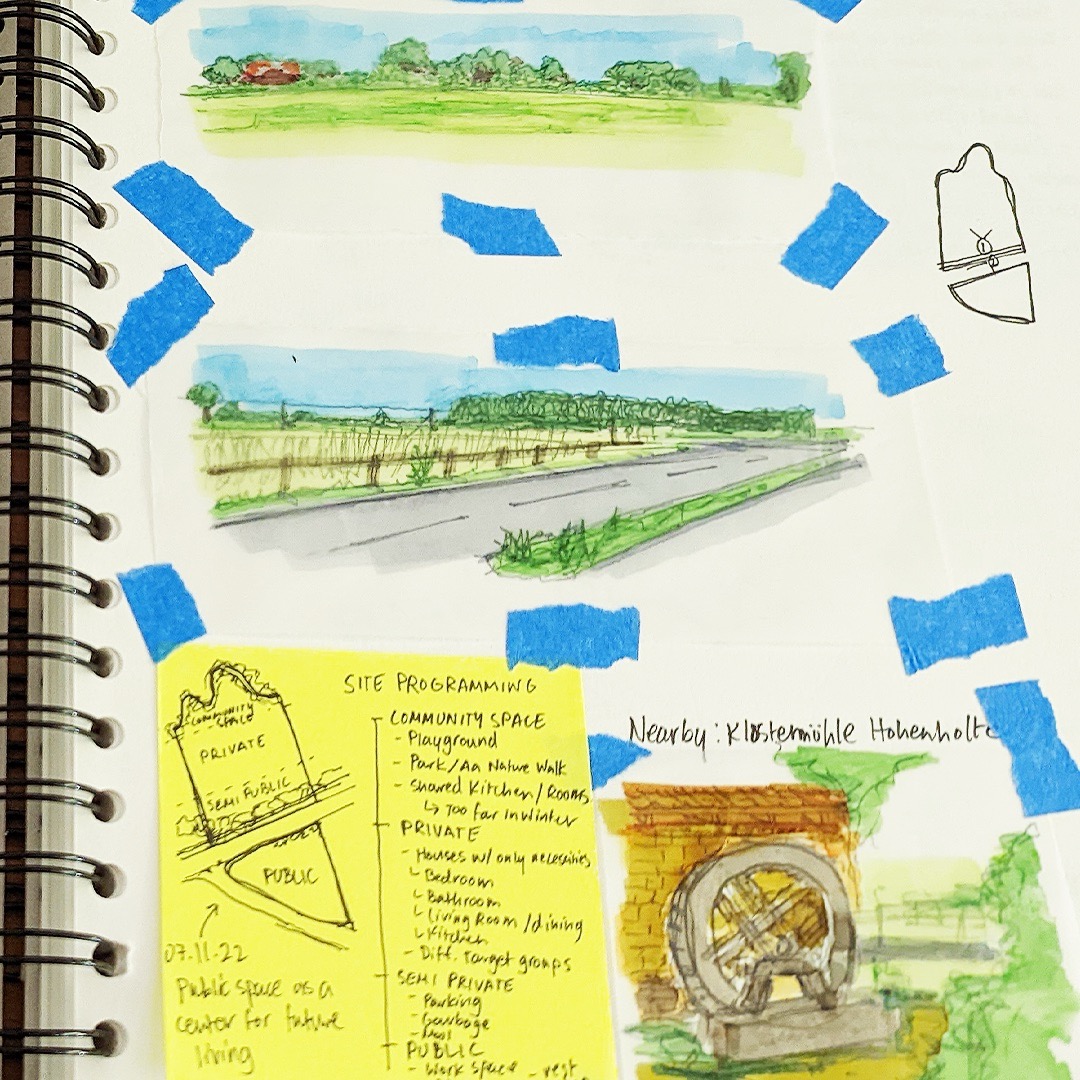 1
2
SITE PROGRAMMING
COMMUNITY SPACE
PRIVATE
SEMI PUBLIC
PUBLIC
07.11.22
Public space as a
center for future
living
COMMUNITY SPACE
- Playground
- Park/Aa Nature Walk
- Shared Kitchen/Rooms
↳ Too far in winter
PRIVATE
- Houses w/ only necessities
↳ Bedroom
↳ Bathroom
↳ Living Room/dining
↳ Kitchen
- Diff. Target groups
SEMI PRIVATE
- Parking
- Garbage
- Mail
PUBLIC
- Work space - rest
Nearby: Klostermühle Hohenholte